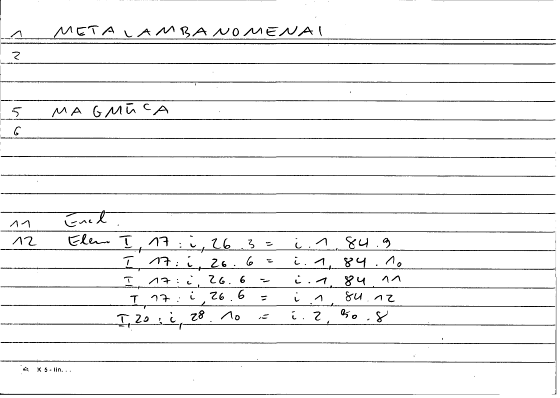 1 METALAMBANOMENAI
2
5
6
11 Eucl.
12 Elem I, 17 : i, 26.3 = i.1, 84.9
I, 17 : i, 26.6 = i.1, 84.10
I, 17 : i, 26.6 = i.1, 84.11
I, 17 : i, 26.6 = i.1, 84.12
I, 20 : i, 28.10 = i.2, 90.8